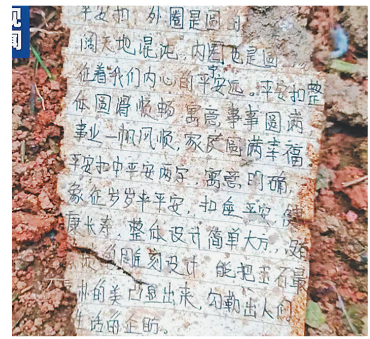 视
闻
平安扣,外圈是圆
阔天地混沌,内圈也是圆
征着我们内心的平安宁远。平安扣整
体圆滑顺畅,寓意事事圆满
事业一帆风顺,家庭圆满幸福
平安扣中平安两字,寓意明确,
象征岁岁平平安,扣 平安 健
康长寿,整体设计简单大方,没有
雕刻设计 能把玉石最
的美凸显出来,勾勒出人们
生活的正